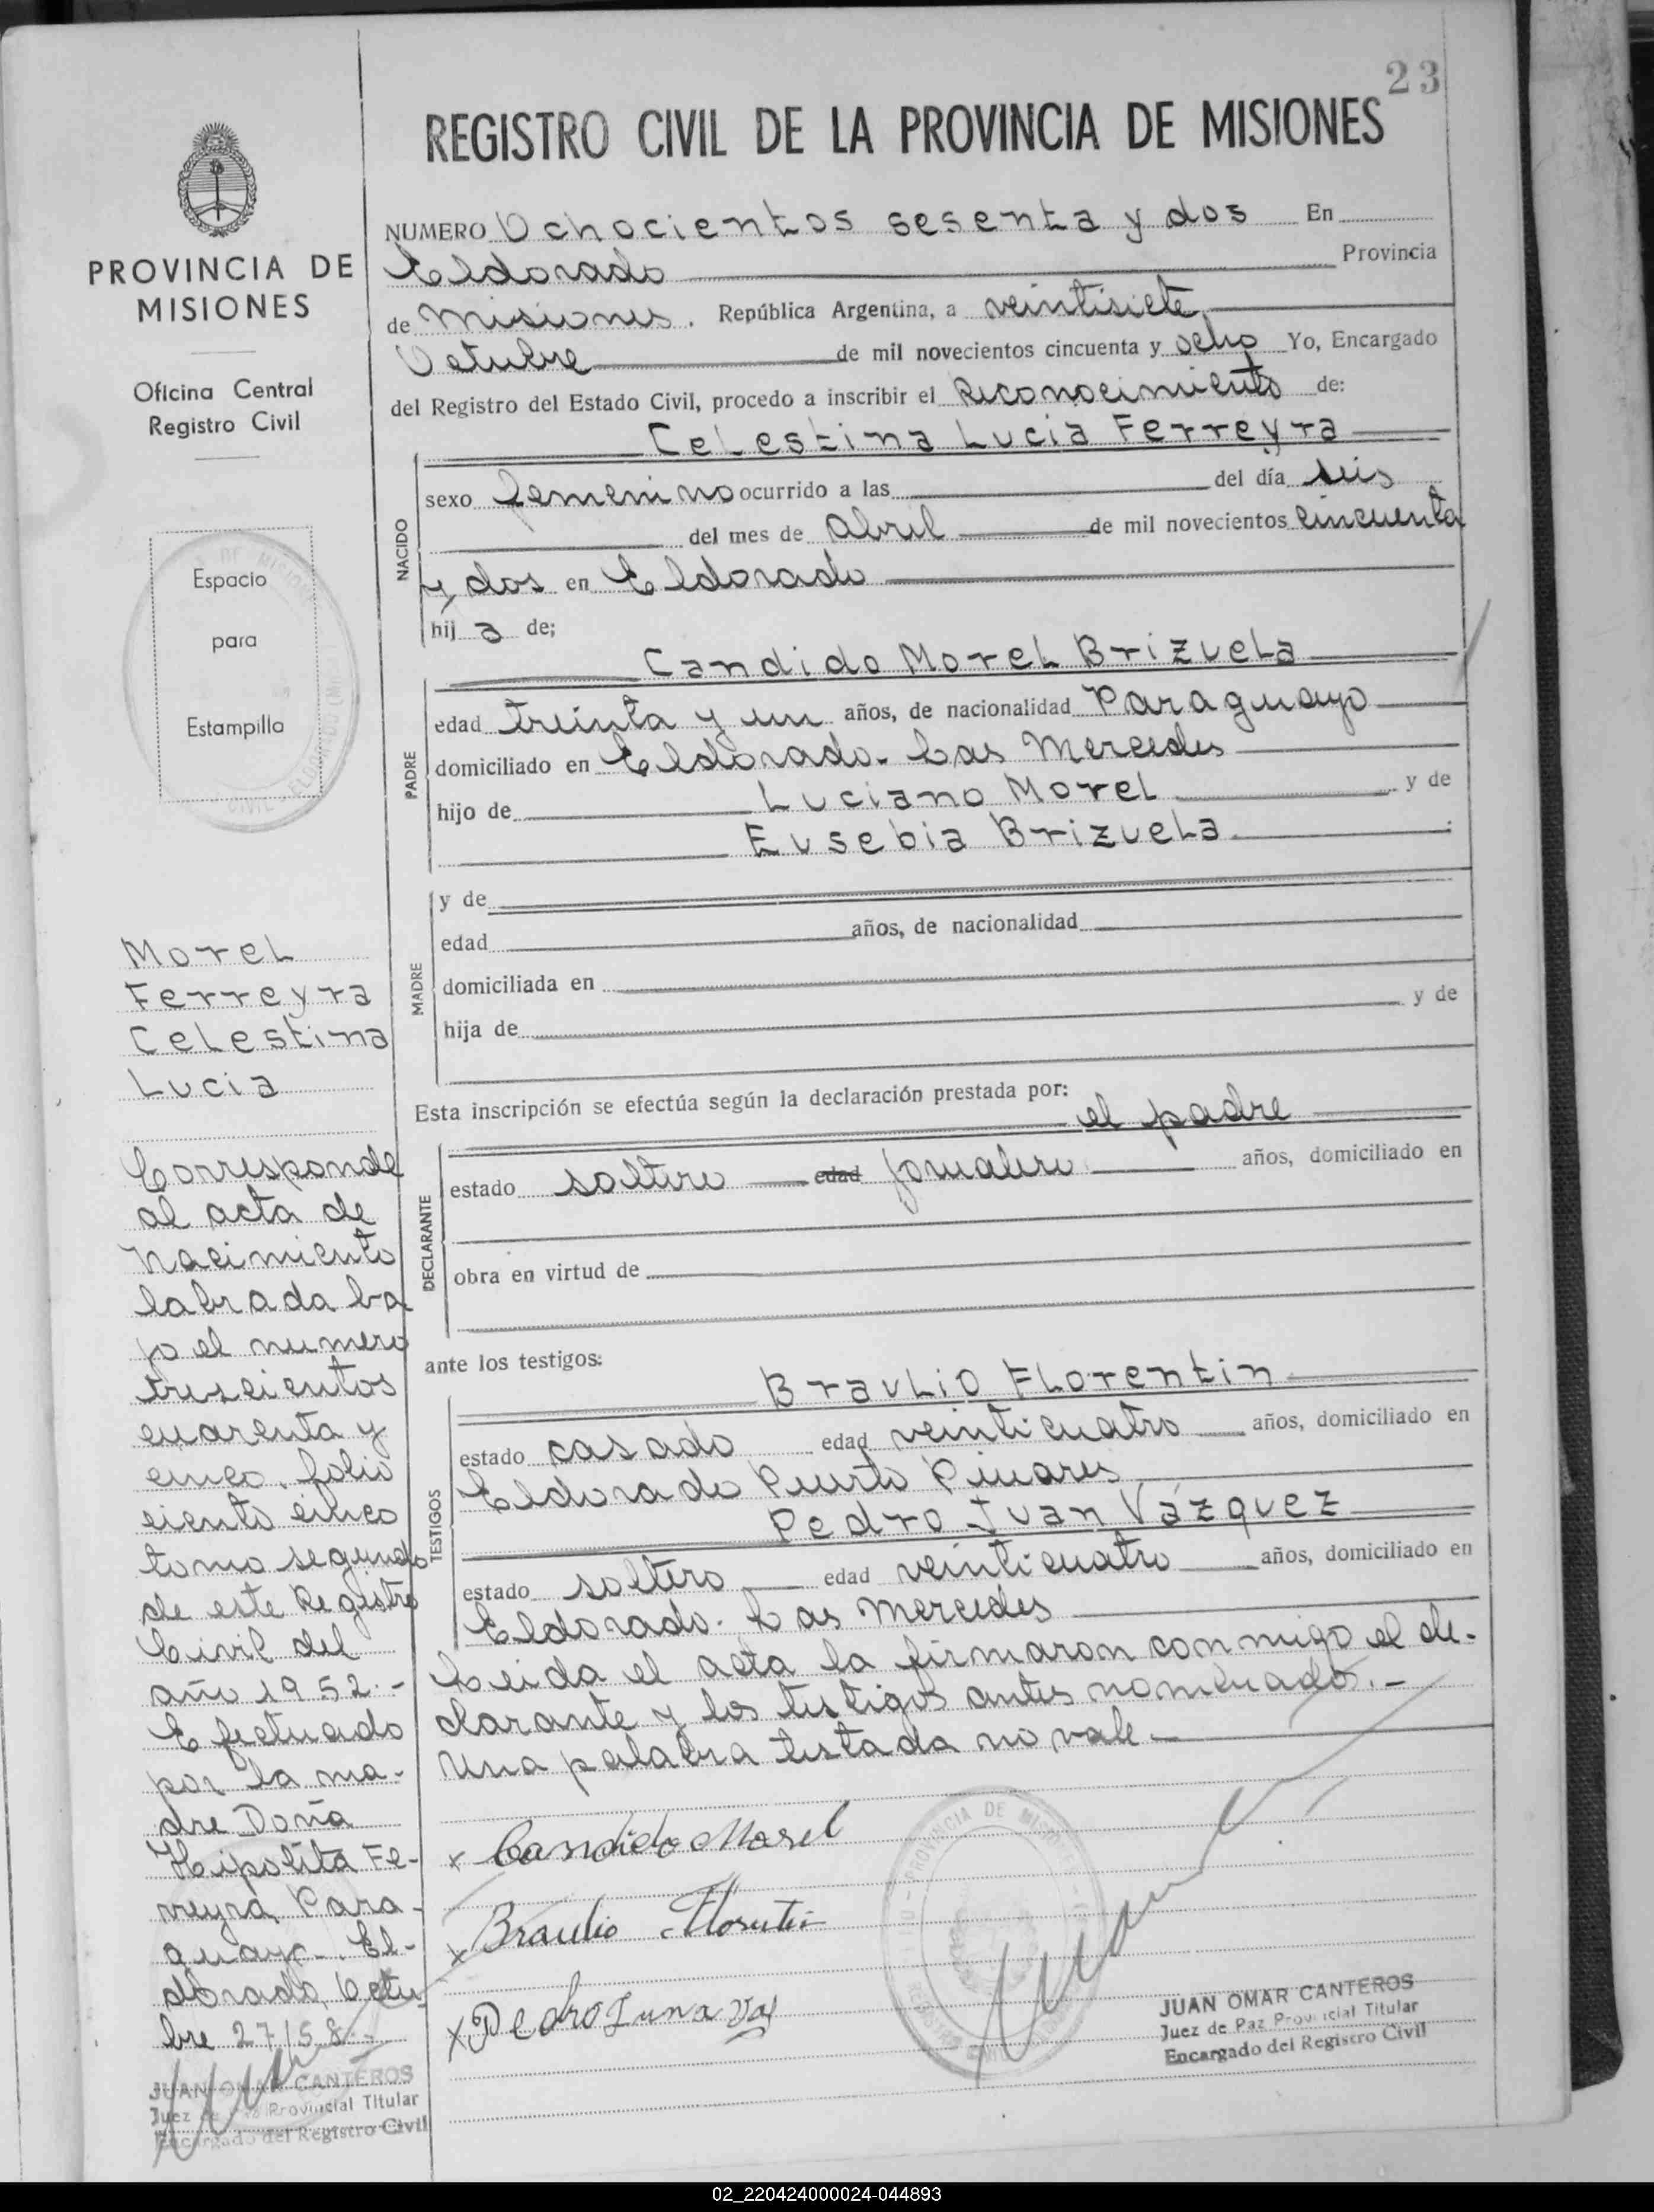 23
REGISTRO CIVIL DE LA PROVINCIA DE MISIONES
PROVINCIA DE
MISIONES
Oficina Central
Registro Civil
Espacio
para
Estampilla
NUMERO Ochocientos sesenta y dos En
Eldorado Provincia
de Misiones. República Argentina, a veintisiete
Octubre de mil novecientos cincuenta y ocho Yo, Encargado
del Registro del Estado Civil, procedo a inscribir el Reconocimiento de:
Celestina Lucia Ferreyra
NACIDO
sexo femenino ocurrido a las del día seis
del mes de Abril de mil novecientos cincuenta
y dos en Eldorado
hij a de;
Candido Morel Brizuela
PADRE
edad treinta y un años, de nacionalidad Paraguayo
domiciliado en Eldorado. Las Mercedes
hijo de Luciano Morel y de
Eusebia Brizuela
MADRE
y de
edad años, de nacionalidad
domiciliada en
hija de y de
Esta inscripción se efectúa según la declaración prestada por:
el padre
DECLARANTE
estado soltero edad jornalero años, domiciliado en
obra en virtud de
ante los testigos:
Braulio Florentin
TESTIGOS
estado casado edad veinticuatro años, domiciliado en
Eldorado Puerto Pinares
Pedro Juan Vázquez
estado soltero edad veinticuatro años, domiciliado en
Eldorado. Las Mercedes
Leida el acta la firmaron conmigo el de-
clarante y los testigos antes nombrado.-
Una palabra testada no vale.-
x Candido Morel
x Braulio Florentin
x Pedro Juna Vas
JUAN OMAR CANTEROS
Juez de Paz Provincial Titular
Encargado del Registro Civil
Morel
Ferreyra
Celestina
Lucia
Corresponde
al acta de
Nacimiento
labrada ba
jo el numero
trescientos
cuarenta y
cinco, folio
ciento cinco
tomo segundo
de este Registro
Civil del
año 1952.-
Efectuado
por la ma-
dre Doña
Hipolita Fe-
rreyra, Para-
guaya-. El-
dorado, Octu-
bre 27/58.-
JUAN OMAR CANTEROS
Juez de Paz Provincial Titular
Encargado del Registro Civil
02_220424000024-044893